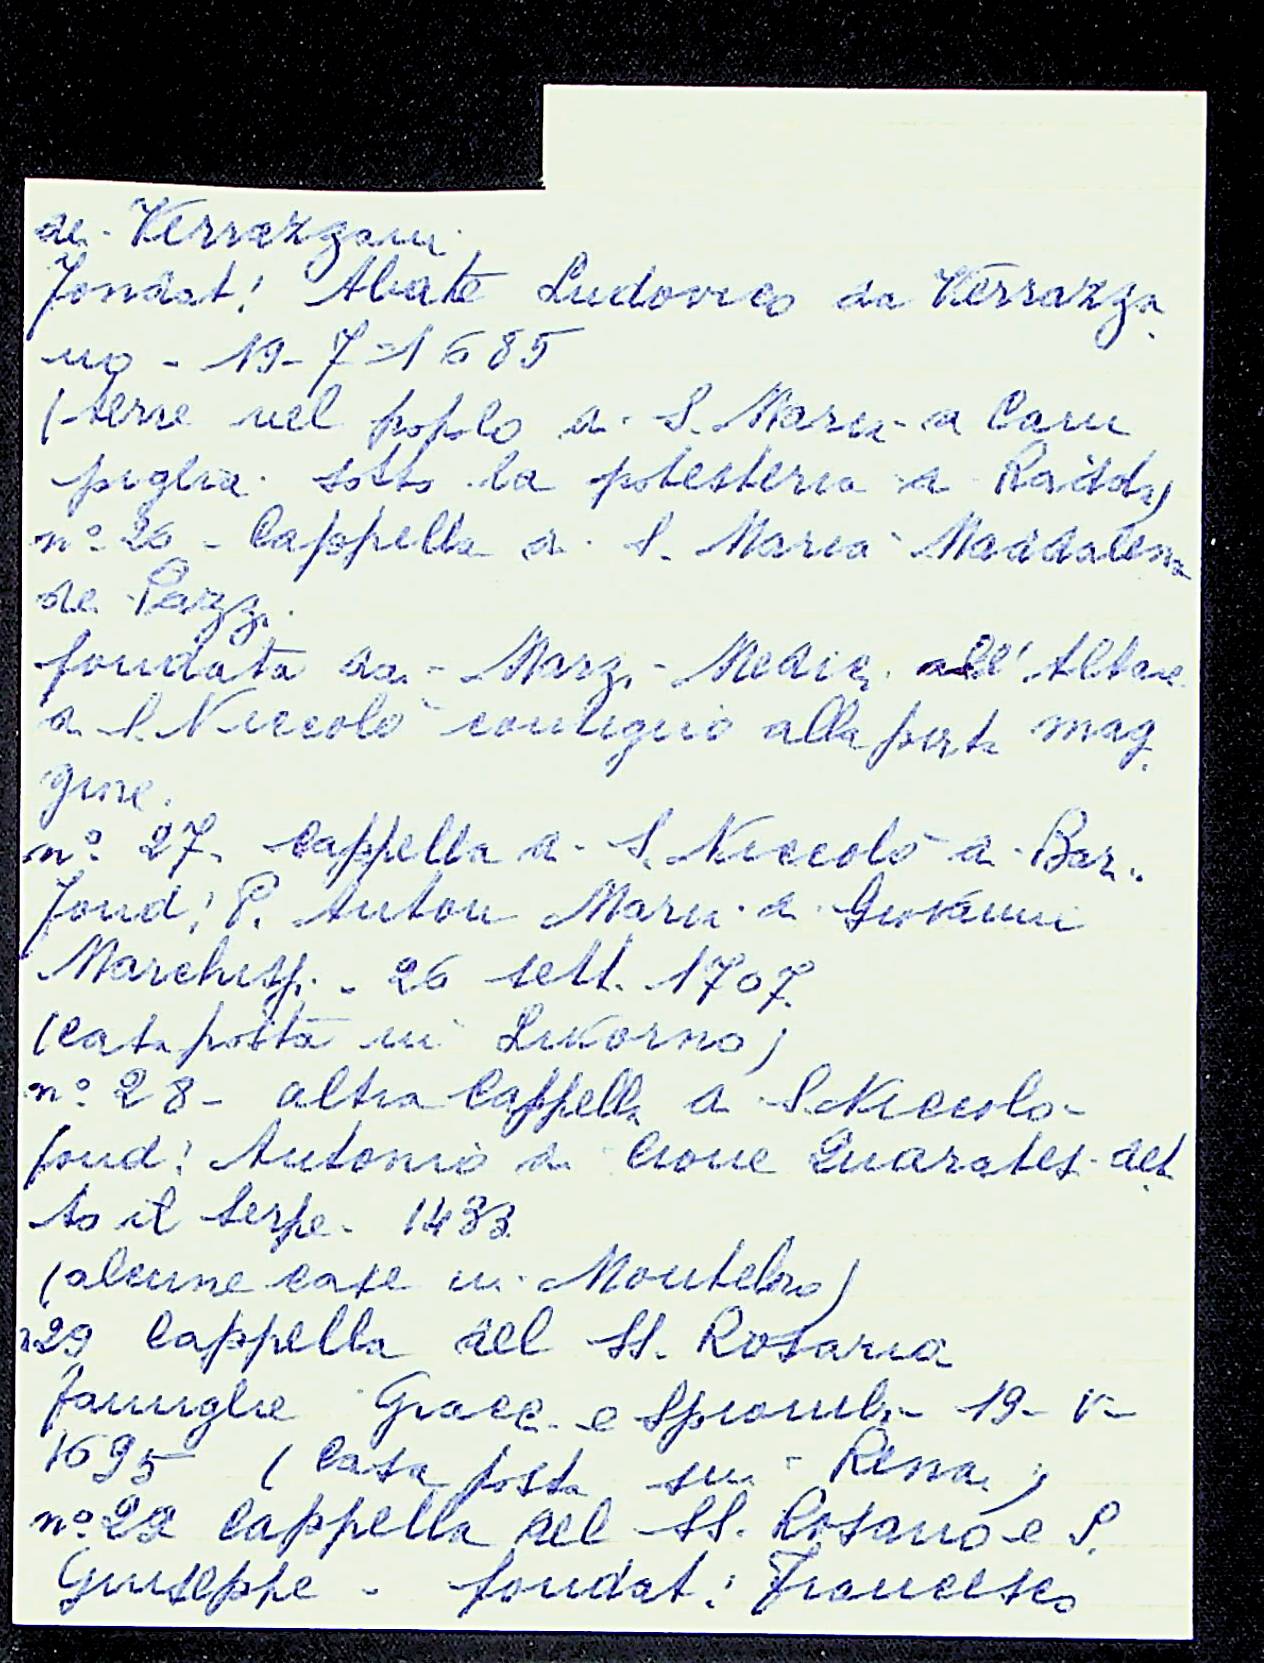 dei Verrazzani
fondat: Abate Ludovico da Verrazza
no - 19-7-1685
(terre nel popolo di S. Maria a Cam
piglia sotto la potesteria di Radda)
n° 26 - Cappella di S. Maria Maddalena
de Pazzi
fondata dai Marzi-Medici all'Altare
di S. Niccolò contiguo alla porta mag
giore.
n° 27. Cappella di S. Niccolò di Bari.
fond: P. Anton Maria di Giovanni
- 26 sett. 1707
(casa posta in Livorno)
n° 28 - altra Cappella di S. Niccolo-
fond: Antonio di Cione Quaratesi det
to il Serpe. 1433
(alcune case in)
n 29 Cappella del SS. Rosario
famiglie e - 19-V-
1695 (Casa posta sui Renai)
n° 29 Cappella del SS. Rosario e S.
Giuseppe - fondat: Francesco